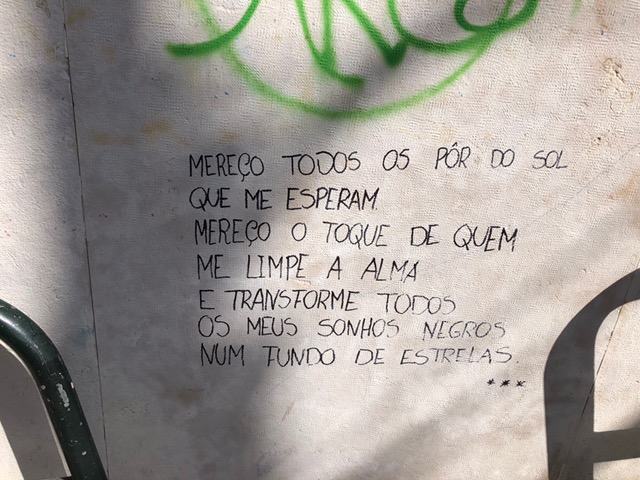 MEREÇO TODOS OS PÔR DO SOL
QUE ME ESPERAM
MEREÇO O TOQUE DE QUEM
ME LIMPE A ALMA
E TRANSFORME TODOS
OS MEUS SONHOS NEGROS
NUM TUNDO DE ESTRELAS.
***